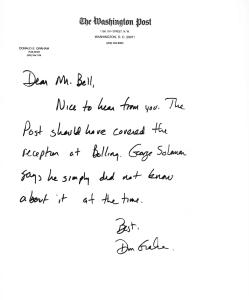 The Washington Post
1150 15TH STREET, N.W.
WASHINGTON, D. C. 20071
DONALD E. GRAHAM
PUBLISHER
Dear Mr. Bell,
Nice to hear from you. The
Post should have covered the
reception at Bolling. George Solomon
says he simply did not know
about it at the time.
Best,
Don Graham